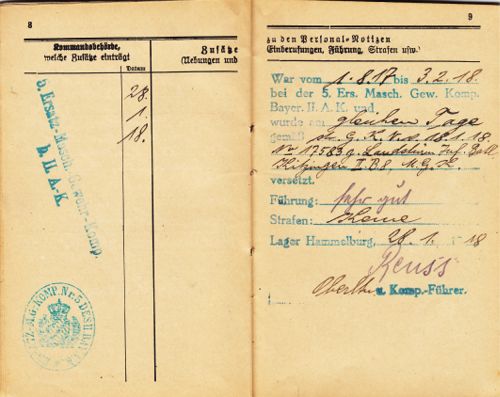 8
Kommandobehörde,
welche Zusätze einträgt
Datum
Zusätze
(Uebungen und
5. Ersatz-Masch. Gewehr-Komp.
b. II. A.-K.
28.
1.
18.
9
zu den Personal-Notizen
Einberufungen, Führung, Strafen usw.
War vom 1.8.17 bis 3.2.18.
bei der 5. Ers. Masch. Gew. Komp.
Bayer. II. A. K. und
wurde am gleichen Tage
gemäß G. K. v. 18.1.18.
No 17583 Landsturm Inf. Batl.
Kitzingen II. B 8. M. G. K.
versetzt.
Führung: sehr gut
Strafen: Keine
Lager Hammelburg, 28.1.18
Reuss
u. Komp.-Führer.